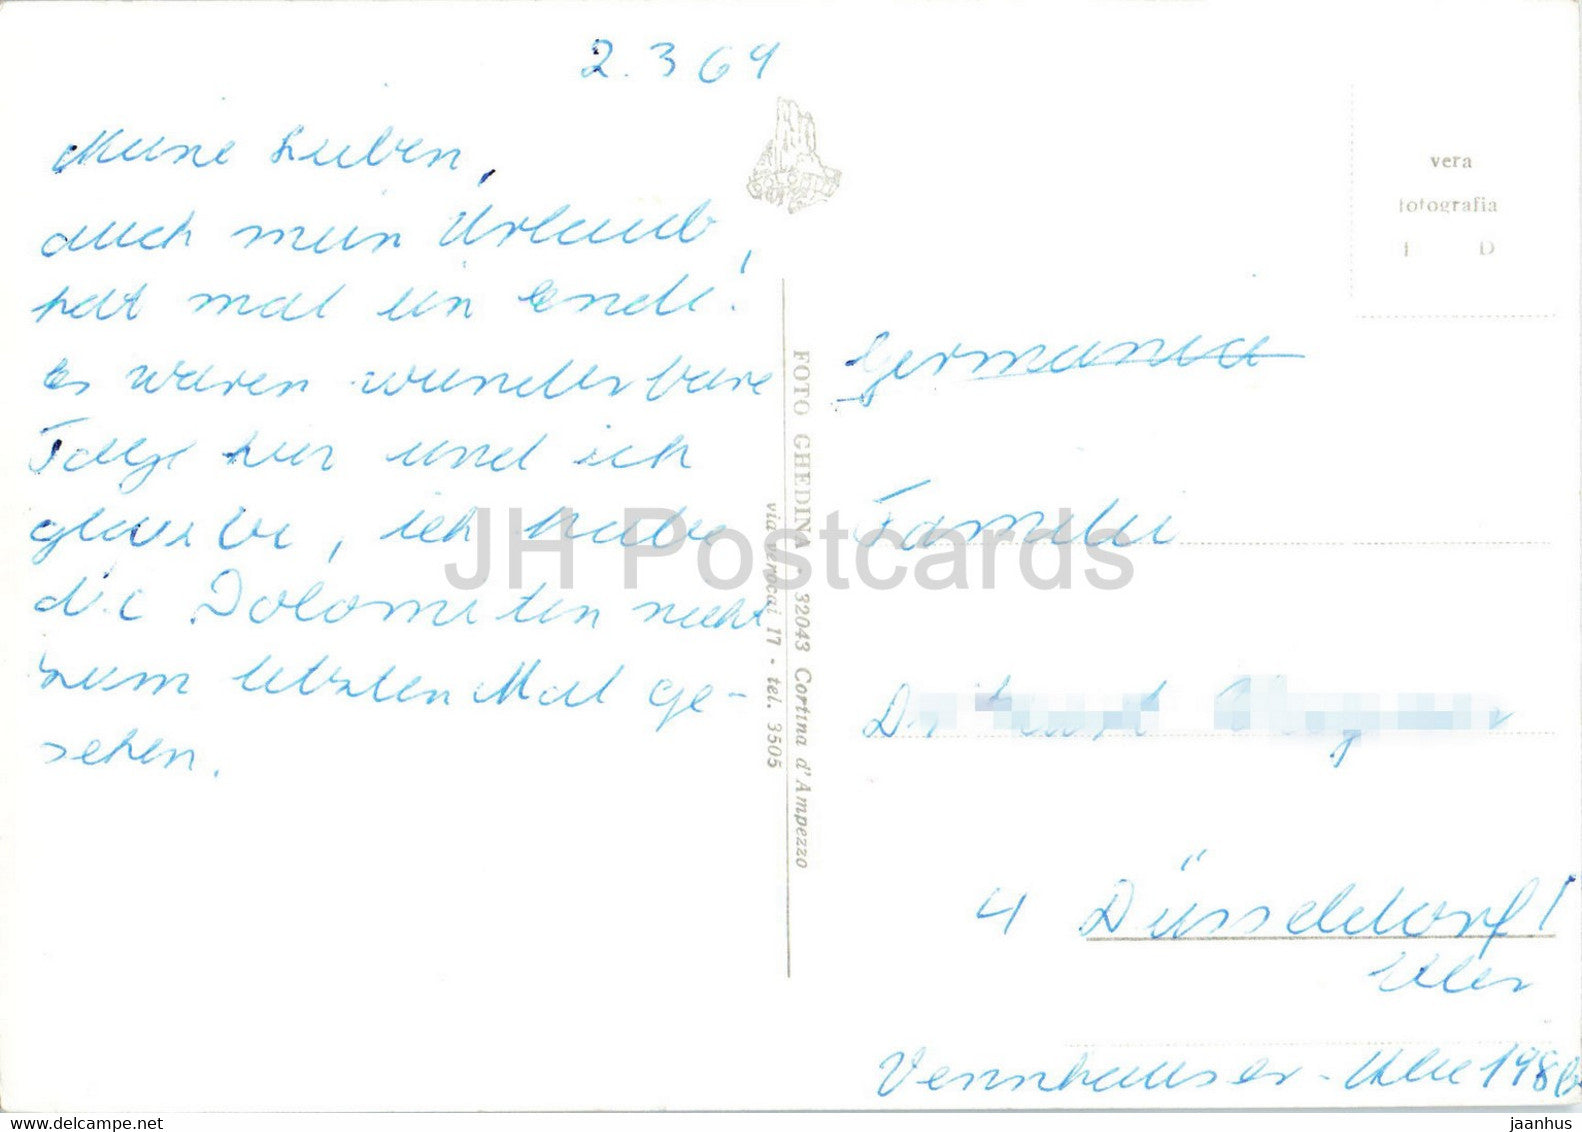 2.3 69
Meine Lieben,
auch mein Urlaub
hat mal ein Ende!
Es waren wunderbare
Tage hier und ich
glaube, ich habe
die Dolomiten nicht
zum letzten Mal ge-
sehen.
FOTO GHEDINA - 32043 Cortina d'Ampezzo
via verocai 17 - tel. 3505
vera
fotografia
Germania
Familie
4 Düsseldorf!
Eller
Vennhauser-Allee 198
JH Postcards
www.delcampe.net
jaanhus